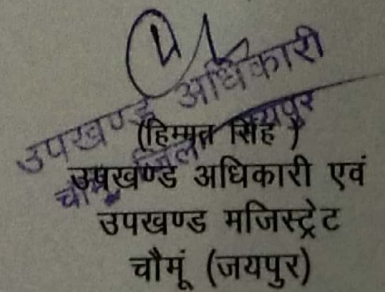 उपखण्ड अधिकारी
चौमूं, जिला जयपुर
(हिम्मत सिंह)
उपखण्ड अधिकारी एवं
उपखण्ड मजिस्ट्रेट
चौमूं (जयपुर)